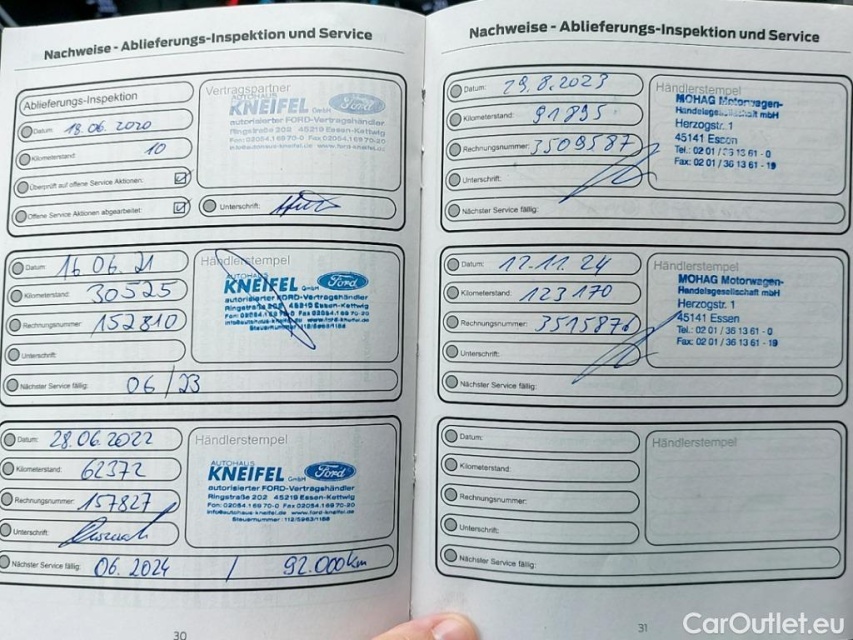 Nachweise - Ablieferungs-Inspektion und Service
Ablieferungs-Inspektion
Datum: 18.06.2020
Kilometerstand: 10
Überprüft auf offene Service Aktionen:
Offene Service Aktionen abgearbeitet:
Vertragspartner
AUTOHAUS
KNEIFEL GmbH Ford
autorisierter FORD-Vertragshändler
Ringstraße 202 45219 Essen-Kettwig
Fon: 02054.169 70-0 Fax 02054.169 70-20
info@autohaus-kneifel.de www.ford-kneifel.de
Unterschrift:
Datum: 16.06.21
Kilometerstand: 30525
Rechnungsnummer: 152810
Unterschrift:
Nächster Service fällig: 06/23
Händlerstempel
AUTOHAUS
KNEIFEL GmbH Ford
autorisierter FORD-Vertragshändler
Ringstraße 202 45219 Essen-Kettwig
Fon: 02054.169 70-0 Fax 02054.169 70-20
info@autohaus-kneifel.de www.ford-kneifel.de
Steuernummer: 112/5963/1186
Datum: 28.06.2022
Kilometerstand: 62372
Rechnungsnummer: 157827
Unterschrift:
Nächster Service fällig: 06.2024 / 92.000km
Händlerstempel
AUTOHAUS
KNEIFEL GmbH Ford
autorisierter FORD-Vertragshändler
Ringstraße 202 45219 Essen-Kettwig
Fon: 02054.169 70-0 Fax 02054.169 70-20
info@autohaus-kneifel.de www.ford-kneifel.de
Steuernummer: 112/5963/1186
30
Nachweise - Ablieferungs-Inspektion und Service
Datum: 29.8.2023
Kilometerstand: 91895
Rechnungsnummer: 3509587
Unterschrift:
Nächster Service fällig:
Händlerstempel
MOHAG Motorwagen-
Handelsgesellschaft mbH
Herzogstr. 1
45141 Essen
Tel.: 02 01 / 36 13 61 - 0
Fax: 02 01 / 36 13 61 - 19
Datum: 12.11.24
Kilometerstand: 123170
Rechnungsnummer: 3515871
Unterschrift:
Nächster Service fällig:
Händlerstempel
MOHAG Motorwagen-
Handelsgesellschaft mbH
Herzogstr. 1
45141 Essen
Tel.: 02 01 / 36 13 61 - 0
Fax: 02 01 / 36 13 61 - 19
Datum:
Kilometerstand:
Rechnungsnummer:
Unterschrift:
Nächster Service fällig:
Händlerstempel
31
CarOutlet.eu